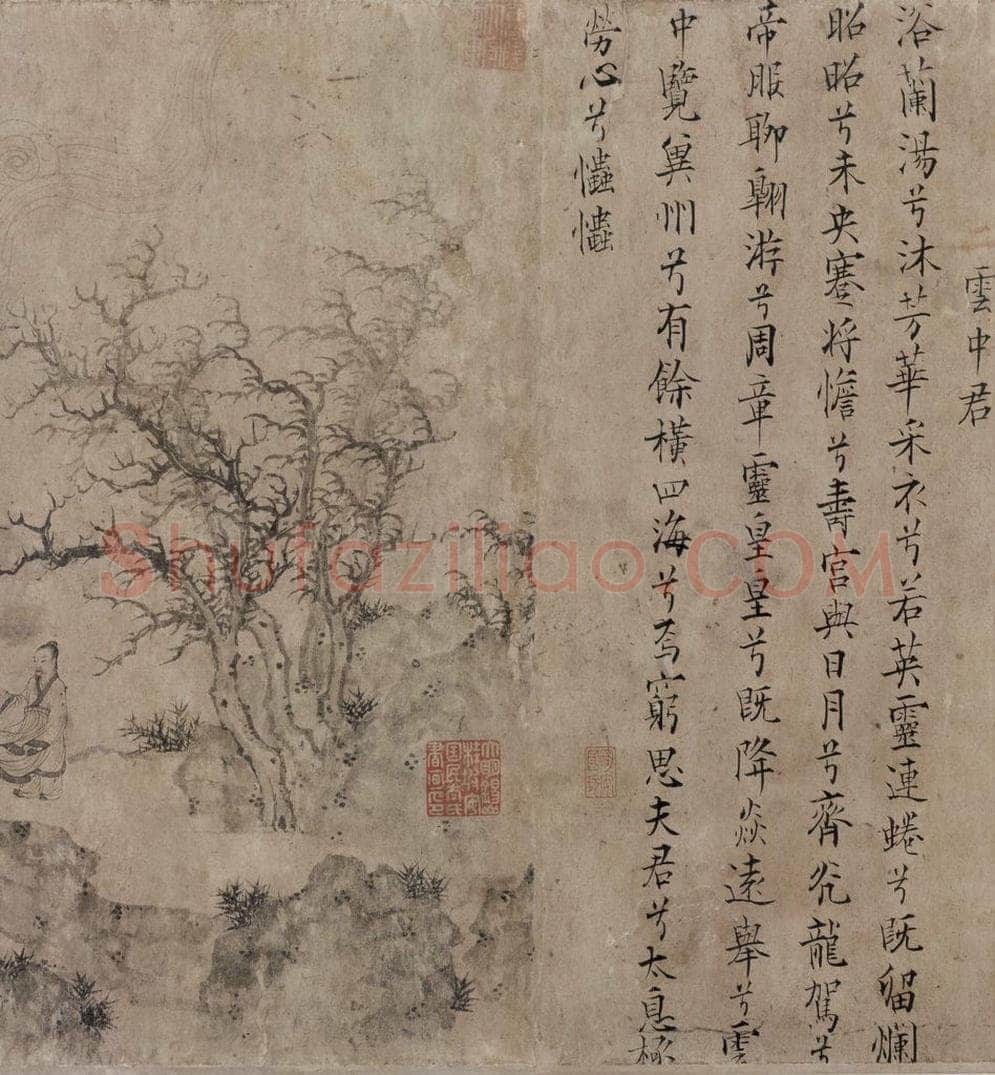 雲中君
浴蘭湯兮沐芳華采衣兮若英靈連蜷兮既留爛
昭昭兮未央蹇將憺兮壽宮與日月兮齊光龍駕兮
帝服聊翱游兮周章靈皇皇兮既降焱遠舉兮雲
中覽冀州兮有餘橫四海兮焉窮思夫君兮太息極
勞心兮𢥞𢥞
Shufaziliao.COM